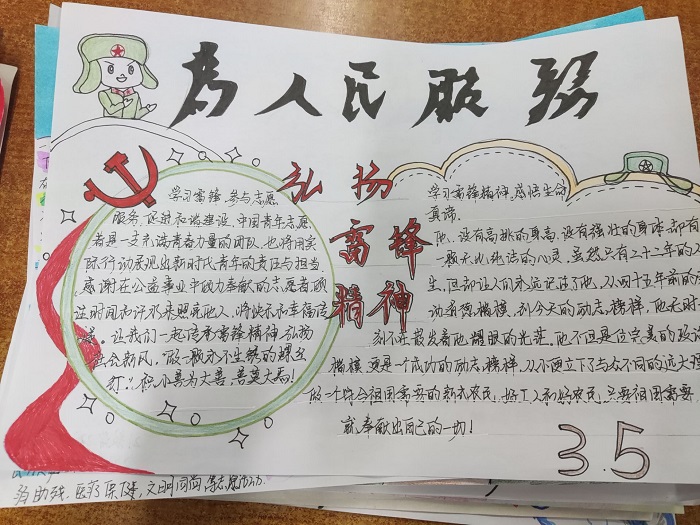 为人民服務
学习雷锋,参与志愿
服务,促进和谐建设,中国青年志愿
者是一支充满青春力量的团队,也将用实
际行动展现出新时代青年的责任与担当.
感谢在公益事业中助力奉献的志愿者,愿
让时间和汗水照亮他人,将快乐和幸福传
递。让我们一起传承雷锋精神,弘扬
社会新风,“做一颗永不生锈的螺丝
钉”。积小善为大善,善莫大焉!
弘扬
雷锋
精神
学习雷锋精神,感悟生命
真谛.
他,没有高挑的身高,没有强壮的身体,却有
一颗无比纯洁的心灵,虽然只有二十二年的人
生,但却让人们永远记住了他,从四十五年前的
动者,楷模,到今天的励志,榜样,他无时
刻不在散发着他耀眼的光芒,他不但是位完美的
楷模,更是一个成功的励志,榜样,从小便立下了与众不同的远大理
做一个符合祖国需要的新式农民,好工人和好农民,只要祖国需要,
就奉献出自己的一切!
3.5
助残.医疗保健,文明